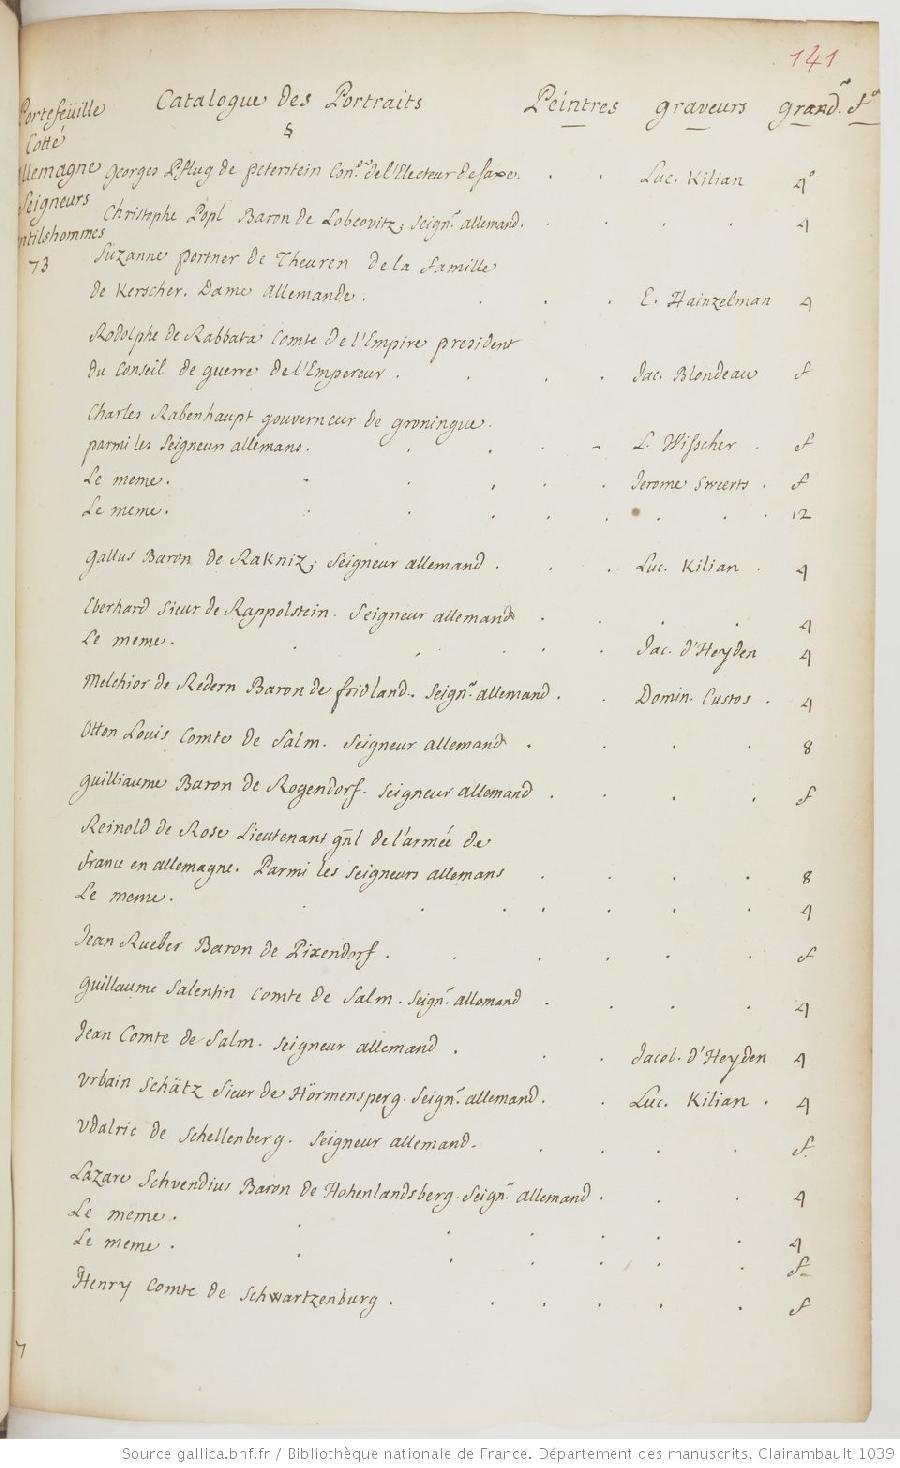 141
Portefeuille Catalogue des Portraits Peintres graveurs grandr fo
Cotté §
allemagne Georges Pflug de peterstein Conser de l'Electeur de saxe. Luc. Kilian 4o
Seigneurs Christophe Popl Baron de Lobcovitz, seignr allemand. 4
gentilshommes
73 Suzanne portner de Theuren de la famille
de Kerscher. Dame allemande. E. Hainzelman 4
Rodolphe de Rabbata Comte de l'Empire president
du conseil de guerre de l'Empereur. Jac. Blondeau f
Charles Rabenhaupt gouverneur de groningue.
parmi les seigneurs allemans. L. Wisscher f
Le meme. Jerome Swerts f
Le meme. 12
gallus Baron de Rakniz, seigneur allemand. Luc. Kilian 4
Eberhard Sieur de Rappolstein. Seigneur allemand 4
Le meme. Jac. d'Heyden 4
Melchior de Redern Baron de fridland. Seignr allemand. Domin. Custos 4
Otton Louis Comte de Salm. Seigneur allemand. 8
guilliaume Baron de Rogendorf. seigneur allemand f
Reinold de Rose Lieutenant gñl de l'armée de
france en allemagne. Parmi les seigneurs allemans 8
Le meme. 4
Jean Rueber Baron de Pixendorf. f
guillaume Salentin Comte de Salm. seignr allemand 4
Jean Comte de Salm. seigneur allemand. Jacob. d'Heyden 4
Urbain Schätz Sieur de Hörmensperg. Seignr allemand. Luc. Kilian 4
Udalric de Schellenberg. seigneur allemand. f.
Lazare Schvendius Baron de Hohenlandsberg. Seignr allemand. 4
Le meme. 4
Le meme. f
Henry Comte de Schwartzenburg. f
Source gallica.bnf.fr / Bibliothèque nationale de France. Département des manuscrits. Clairambault 1039